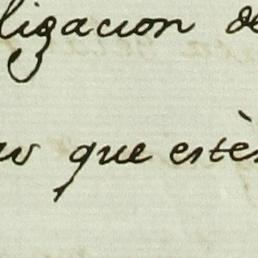 ligacion de
que estè